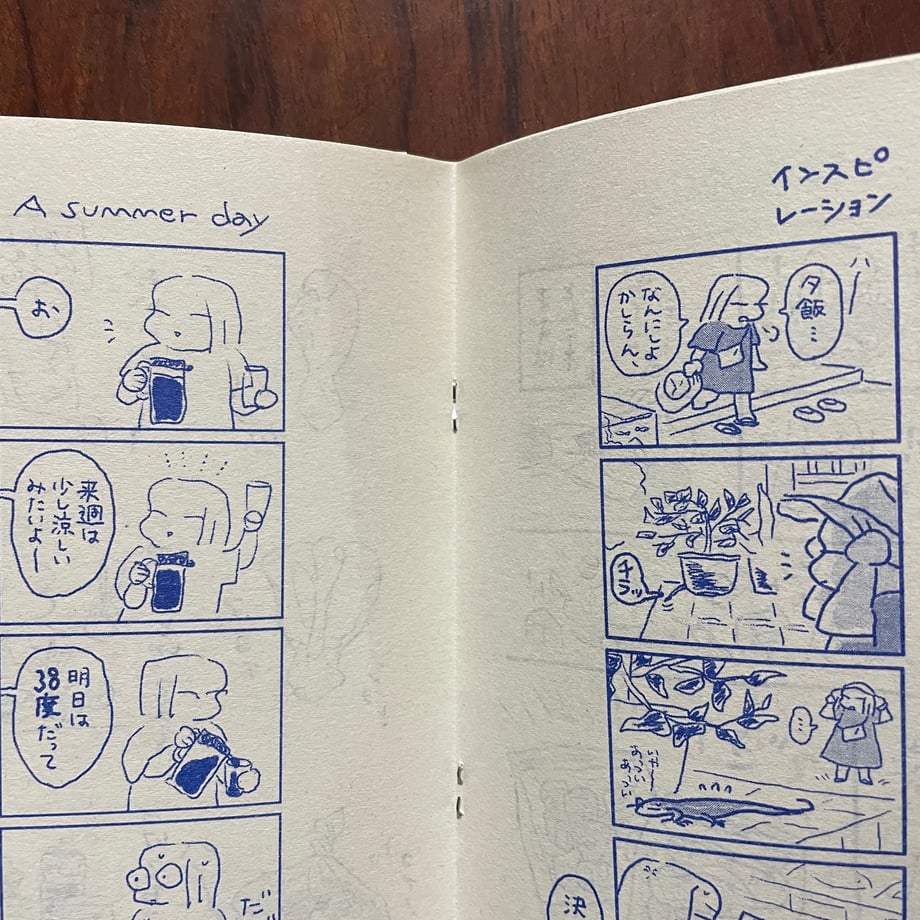 A summer day
お
来週は
少し涼しい
みたいよー
明日は
38度だって
だ
インスピ
レーション
夕飯…
なんにしよ
かしらん、
チラッ
…
決